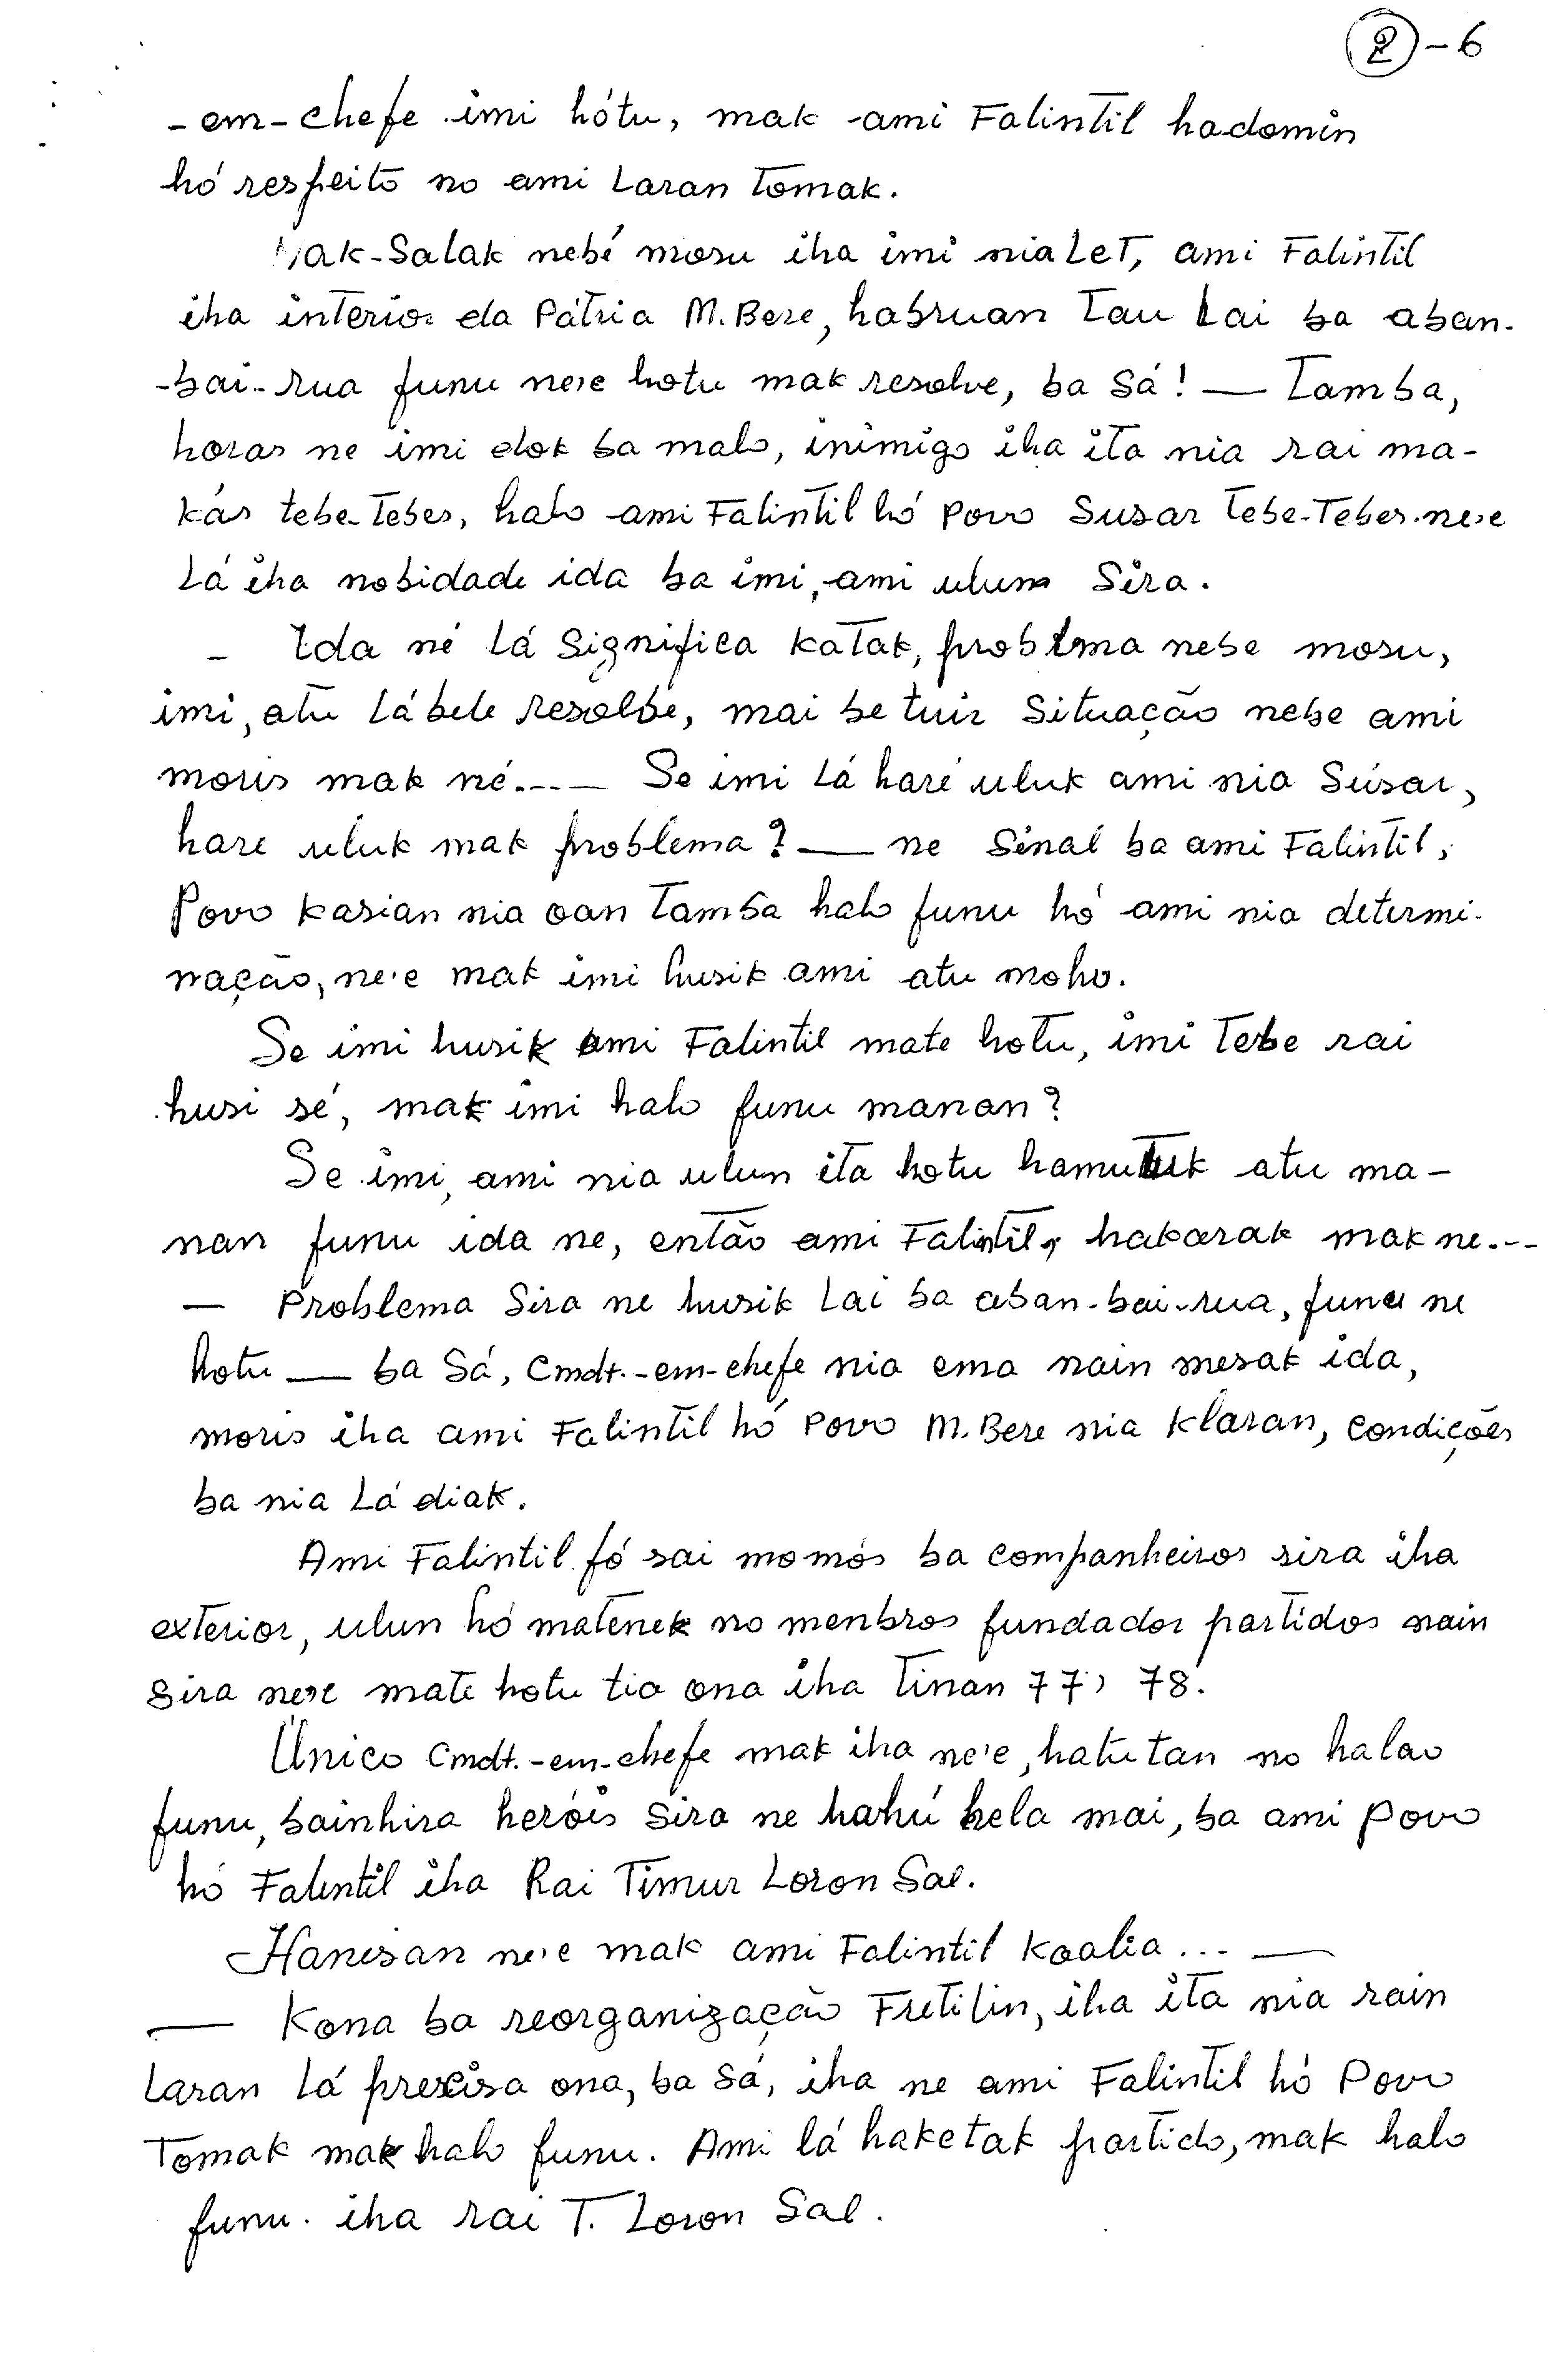 2 - 6
-em-chefe imi hótu, mak ami Falintil hadomin
hó respeito no ami Laran Tomak.
Nak-Salak nebé mosu iha imi nia Let, ami Falintil
iha interior da Pátria M. Bere, habruan Tau Lai ba aban-
-bai-rua funu ne'e hotu mak resolve, ba Sá! — Tamba,
horas ne imi dok ba malo, inimigo iha ita nia rai ma-
kás tebe-Tebes, halo ami Falintil hó Povo Susar Tebe-Tebes. ne'e
Lá iha nobidade ida ba imi, ami ulun Sira.
- Ida né Lá Significa Katak, problema nebe mosu,
imi, atu Lá bele resolbe, mai be tuir Situação nebe ami
moris mak né...— Se imi Lá haré uluk ami nia Súsar,
hare uluk mak problema? — ne Sinal ba ami Falintil,
Povo Kasian nia oan Tamba halo funu hó ami nia determi-
nação, ne'e mak imi husik ami atu moho.
Se imi husik ami Falintil mate hotu, imi Tebe rai
husi sé, mak imi halo funu manan?
Se imi, ami nia ulun ita hotu hamutuk atu ma-
nan funu ida ne, então ami Falintil, hakarak mak ne...
— Problema Sira ne husik Lai ba aban-bai-rua, funu ne
hotu — ba Sá, Cmdt.-em-chefe nia ema nain mesak ida,
moris iha ami Falintil hó Povo M. Bere nia Klaran, Condições
ba nia Lá diak.
Ami Falintil fó sai momós ba companheiros sira iha
exterior, ulun hó matenek no menbros fundador partidos nain
Sira ne'e mate hotu tia ona iha Tinan 77, 78.
Único Cmdt.-em-chefe mak iha ne'e, hatutan no halao
funu, bainhira heróis Sira ne hahú hela mai, ba ami Povo
hó Falintil iha Rai Timur Loron Sae.
Hanesan ne'e mak ami Falintil Koalia... —
— Kona ba reorganização Fretilin, iha ita nia rain
Laran Lá precisa ona, ba Sá, iha ne ami Falintil hó Povo
Tomak mak halo funu. Ami lá haketak partido, mak halo
funu. iha rai T. Loron Sae.